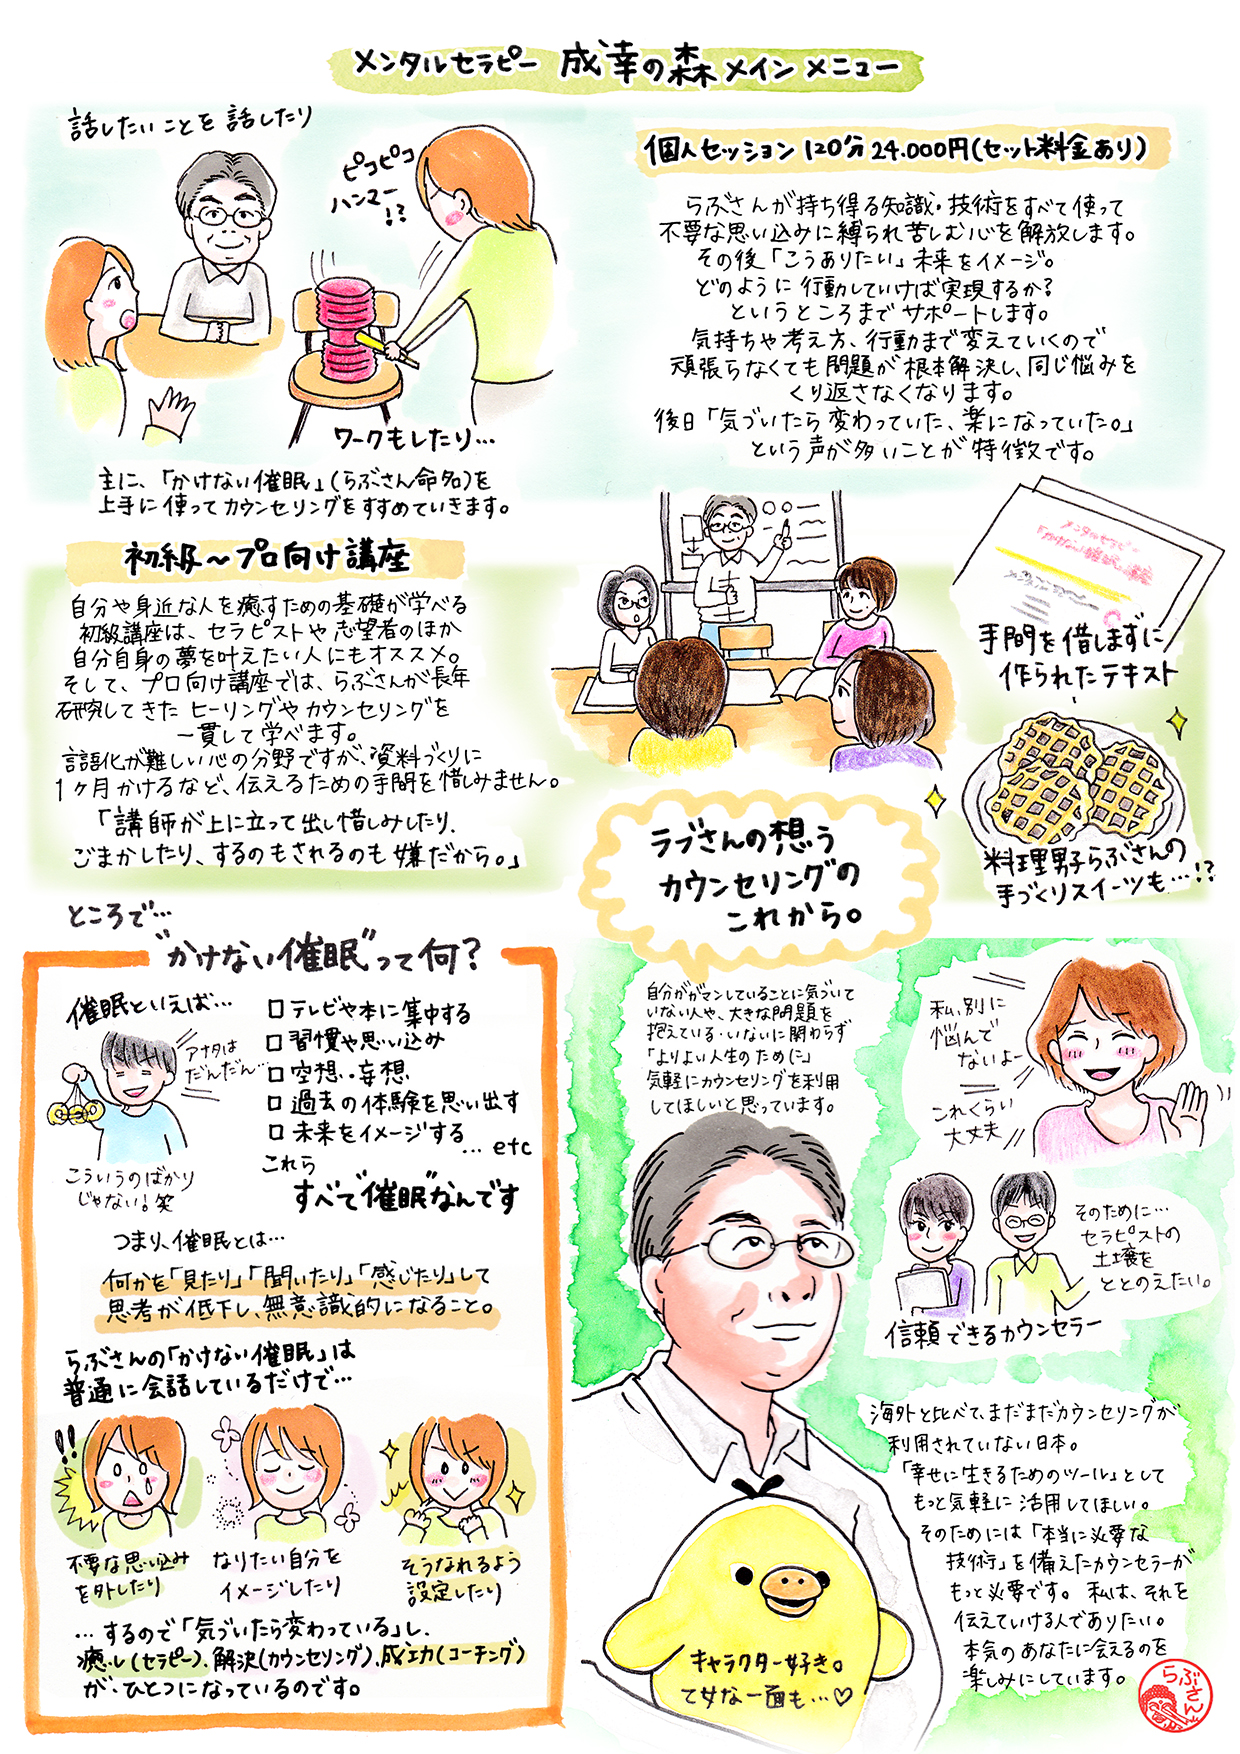 メンタルセラピー 成幸の森 メイン メニュー
話したいことを 話したり
ピコピコ
ハンマー
!?
ワークもしたり…
主に、「かけない催眠」(らぶさん命名)を
上手に使ってカウンセリングをすすめていきます。
個人セッション 120分 24.000円(セット料金あり)
らぶさんが持ち得る知識・技術をすべて使って
不要な思い込みに縛られ苦しむ心を解放します。
その後「こうありたい」未来をイメージ。
どのように行動していけば実現するか?
というところまでサポートします。
気持ちや考え方、行動まで変えていくので
頑張らなくても問題が根本解決し、同じ悩みを
くり返さなくなります。
後日「気づいたら変わっていた、楽になっていた。」
という声が多いことが特徴です。
初級〜プロ向け講座
自分や身近な人を癒すための基礎が学べる
初級講座は、セラピストや志望者のほか
自分自身の夢を叶えたい人にもオススメ。
そして、プロ向け講座では、らぶさんが長年
研究してきたヒーリングやカウンセリングを
一貫して学べます。
言語化が難しい心の分野ですが、資料づくりに
1ヶ月かけるなど、伝えるための手間を惜しみません。
「講師が上に立って出し惜しみしたり、
ごまかしたり、するのもされるのも嫌だから。」
メンタルセラピー
手間を惜しまずに
作られたテキスト
料理男子らぶさんの
手づくりスイーツも…!?
ところで…
"かけない催眠"って何?
催眠といえば…
アナタは
だんだん…
こういうのばかり
じゃない!笑
□ テレビや本に集中する
□ 習慣や思い込み
□ 空想・妄想
□ 過去の体験を思い出す
□ 未来をイメージする
…etc
これら
すべて"催眠"なんです
つまり、催眠とは…
何かを「見たり」「聞いたり」「感じたり」して
思考が低下し、無意識的になること。
らぶさんの「かけない催眠」は
普通に会話しているだけで…
!!
不要な思い込み
を外したり
なりたい自分を
イメージしたり
そうなれるよう
設定したり
…するので「気づいたら変わっている」し、
癒し(セラピー)、解決(カウンセリング)、成功(コーチング)
が、ひとつになっているのです。
ラブさんの想う
カウンセリングの
これから。
自分がガマンしていることに気づいて
いない人や、大きな問題を
抱えている・いないに関わらず
「よりよい人生のために」
気軽にカウンセリングを利用
してほしいと思っています。
私、別に
悩んで
ないよー
これくらい
大丈夫
そのために…
セラピストの
土壌を
ととのえたい。
信頼できるカウンセラー
海外と比べて、まだまだカウンセリングが
利用されていない日本。
「幸せに生きるためのツール」として
もっと気軽に活用してほしい。
そのためには「本当に必要な
技術」を備えたカウンセラーが
もっと必要です。 私は、それを
伝えていける人でありたい。
本気のあなたに会えるのを
楽しみにしています。
キャラクター好き。
て女な一面も…♡
らぶさん